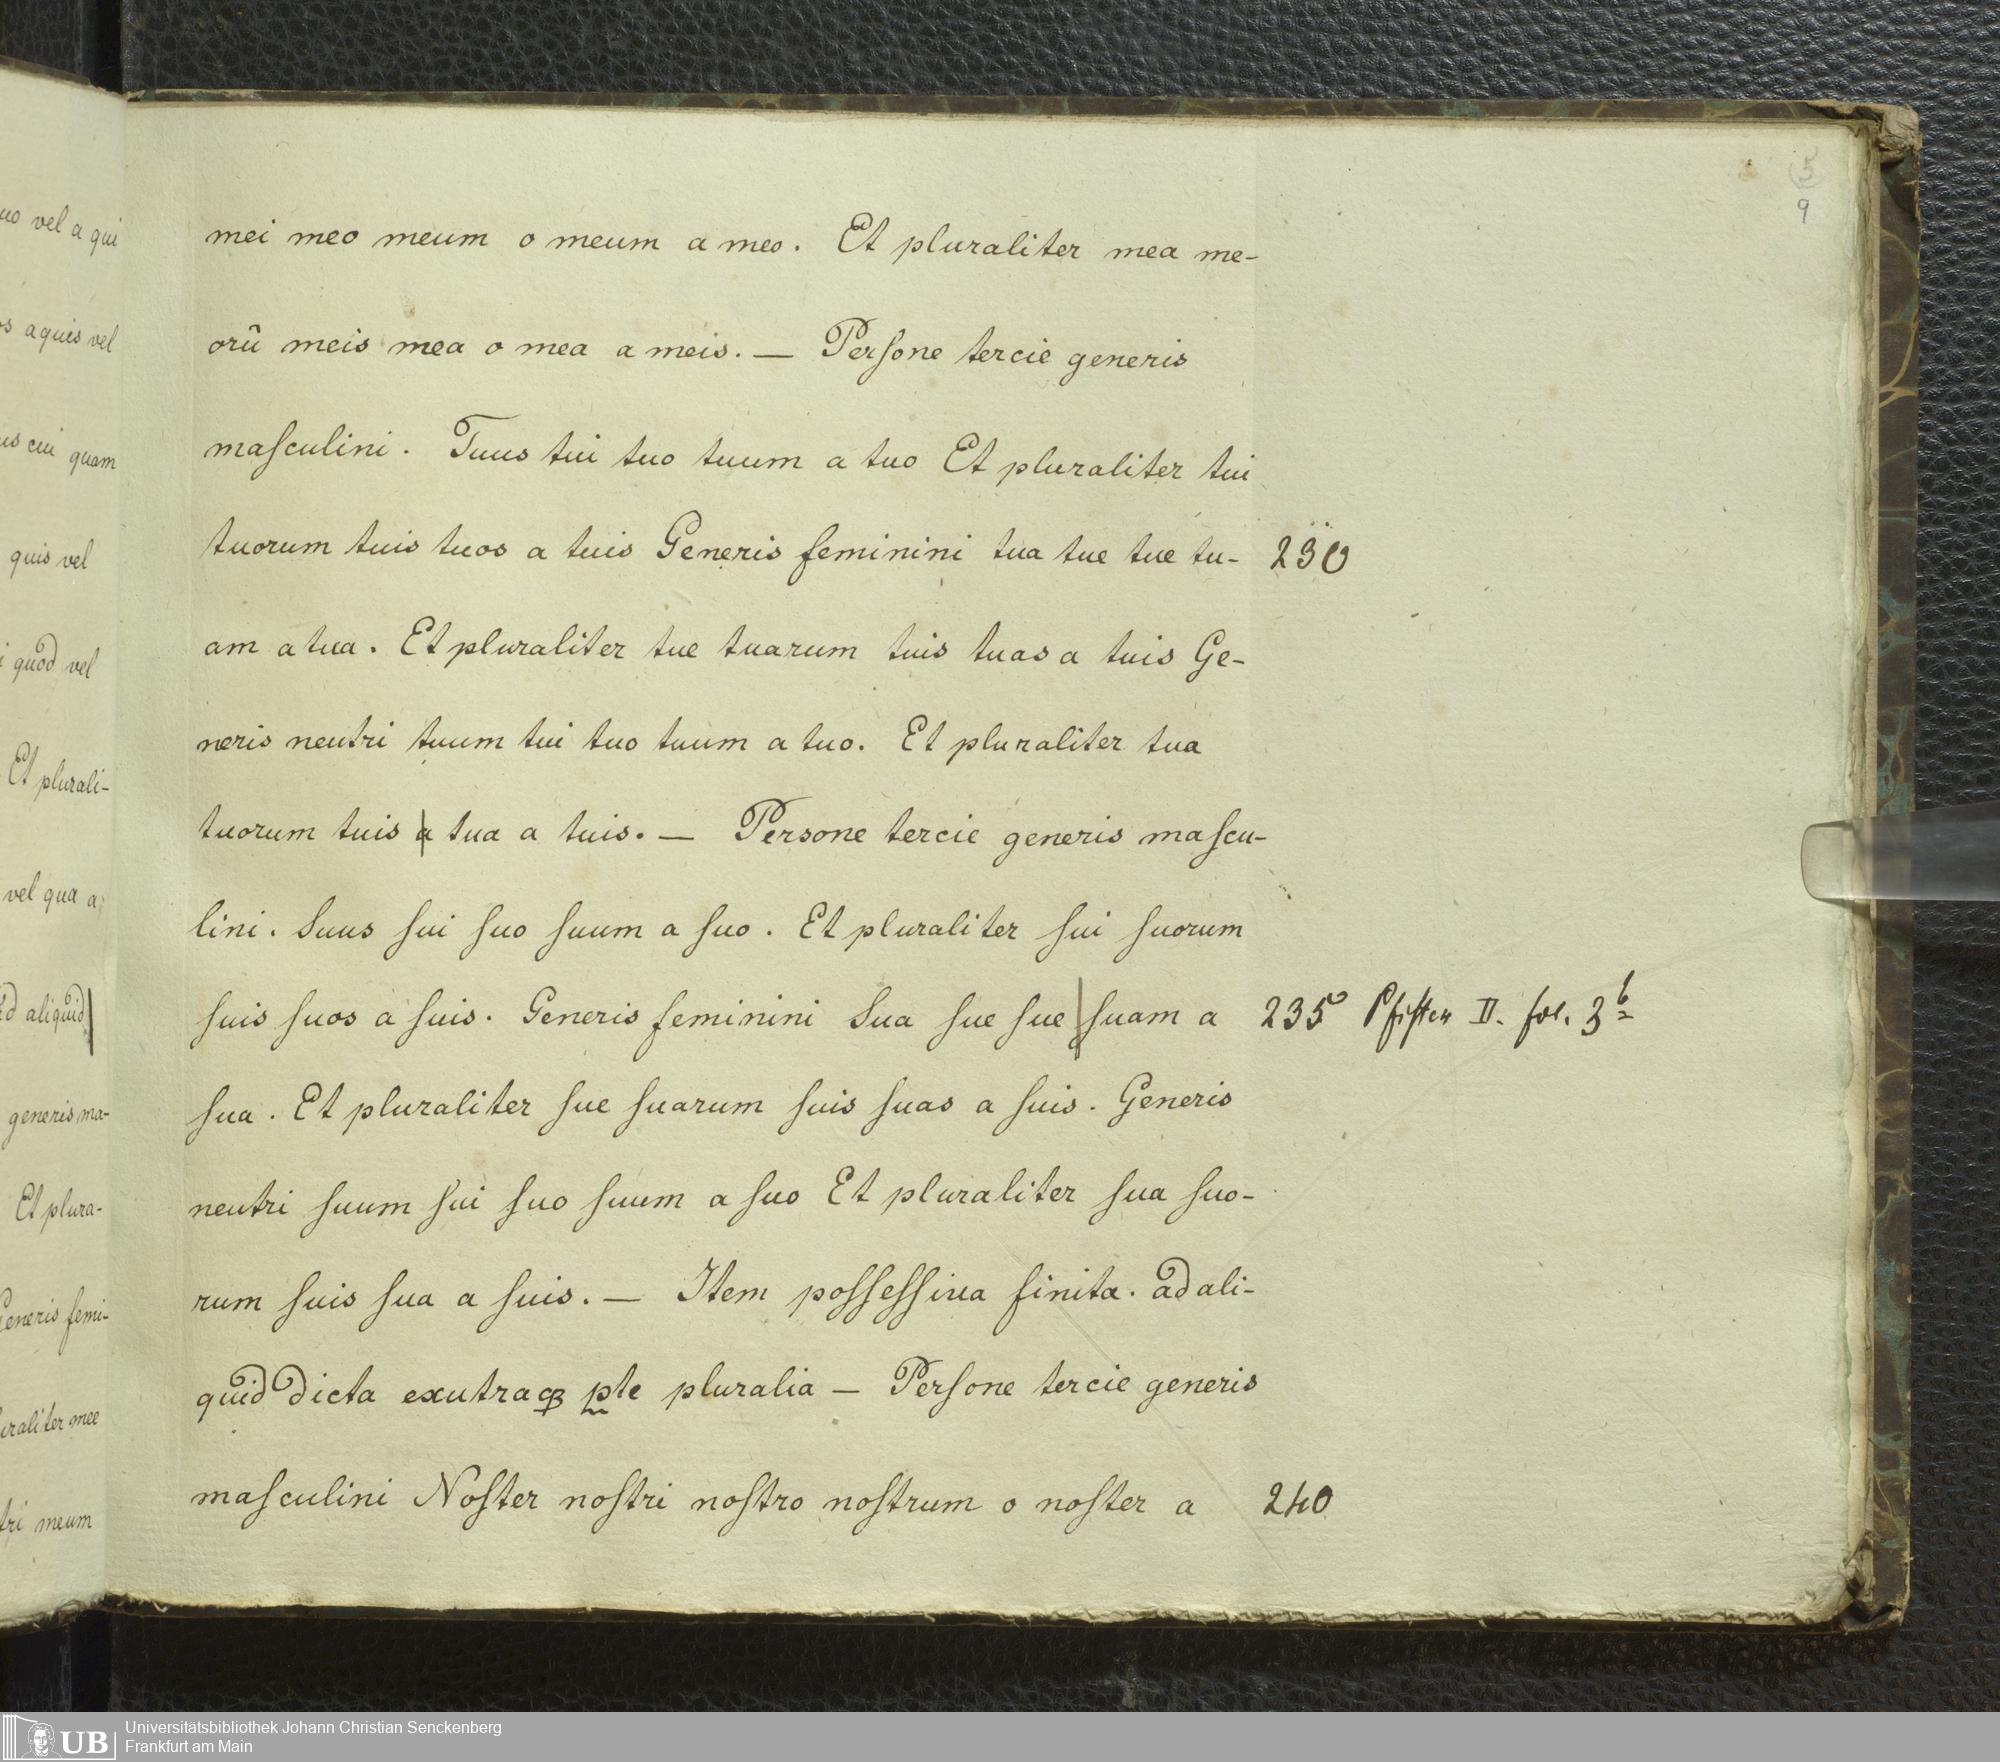 uo vel a qui
os a quis vel
us cui quam
quis vel
i quod vel
Et plurali-
vel qua a
d aliquid
generis ma-
Et plura-
Generis femi-
uraliter mee
tri meum
5
9
mei meo meum o meum a meo. Et pluraliter mea me-
orū meis mea o mea a meis. — Perſone tercie generis
maſculini. Tuus tui tuo tuum a tuo Et pluraliter tui
tuorum tuis tuos a tuis Generis feminini tua tue tue tu- 230
am a tua. Et pluraliter tue tuarum tuis tuas a tuis Ge-
neris neutri tuum tui tuo tuum a tuo. Et pluraliter tua
tuorum tuis a tua a tuis. — Persone tercie generis maſcu-
lini. Suus ſui ſuo ſuum a ſuo. Et pluraliter ſui ſuorum
ſuis ſuos a ſuis. Generis feminini Sua ſue ſue | ſuam a 235 Pfiſter II. fol. 3b
ſua. Et pluraliter ſue ſuarum ſuis ſuas a ſuis. Generis
neutri ſuum ſui ſuo ſuum a ſuo Et pluraliter ſua ſuo-
rum ſuis ſua a ſuis. — Item poſſeſſiua finita. ad ali-
quid dicta exutraqꝫ ꝑte pluralia — Perſone tercie generis
maſculini Noſter noſtri noſtro noſtrum o noſter a 240
UB
Universitätsbibliothek Johann Christian Senckenberg
Frankfurt am Main